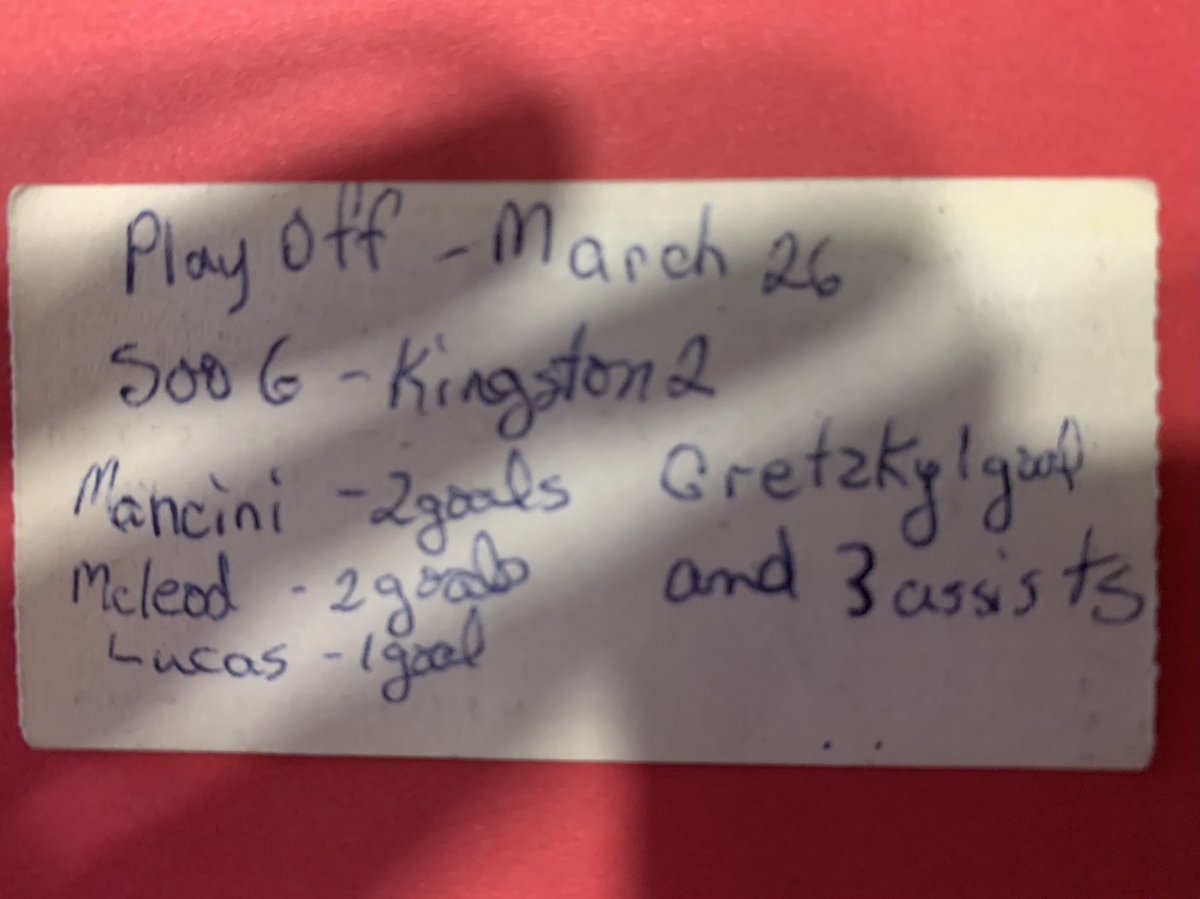 Play Off - March 26
Soo 6 - Kingston 2
Mancini - 2 goals
Mcleod - 2 goals
Lucas - 1 goal
Gretzky 1 goal
and 3 assists